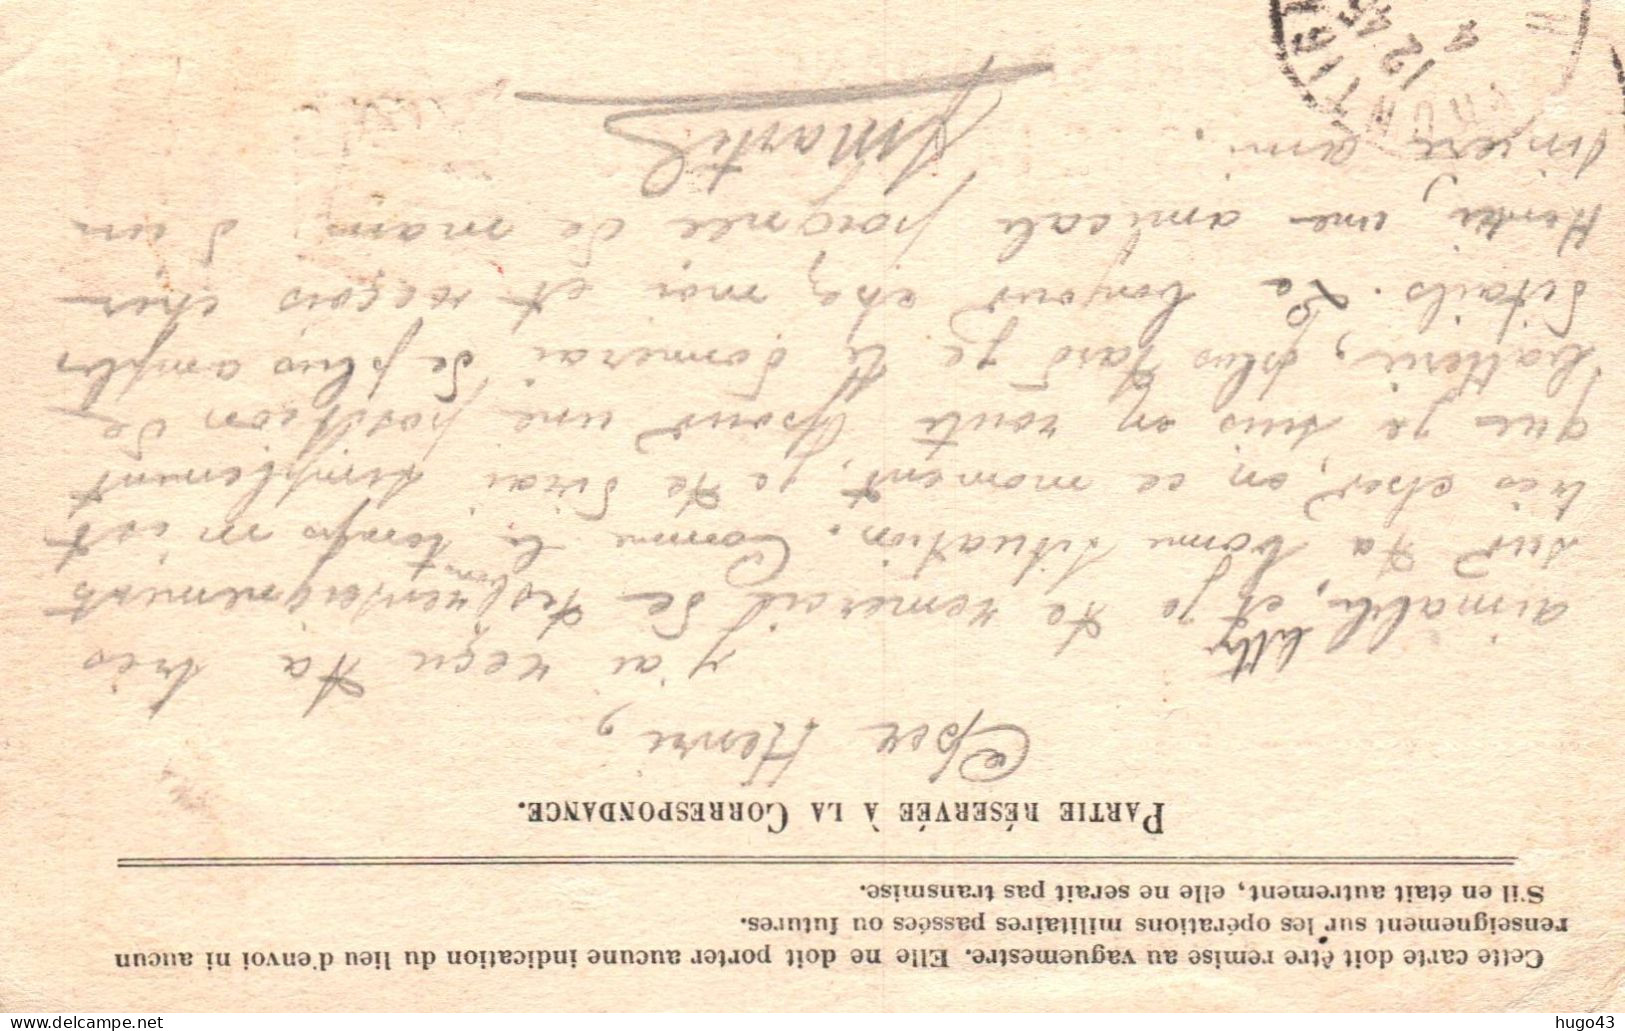 Cette carte doit être remise au vaguemestre. Elle ne doit porter aucune indication du lieu d'envoi ni aucun
renseignement sur les opérations militaires passées ou futures.
S'il en était autrement, elle ne serait pas transmise.
PARTIE RÉSERVÉE À LA CORRESPONDANCE.
Cher Henri,
j'ai reçu ta très
aimable lettre, et je te remercie de tes bons renseignements
sur ta bonne situation. Comme le temps m'est
très cher, en ce moment, je te dirai simplement
que je suis en route pour une position de
batterie, plus tard je te donnerai de plus amples
détails. Le bonjour chez moi et reçois cher
Henri, une amicale poignée de main, d'un
sincère ami.
Martil
12 45
4
hugo43